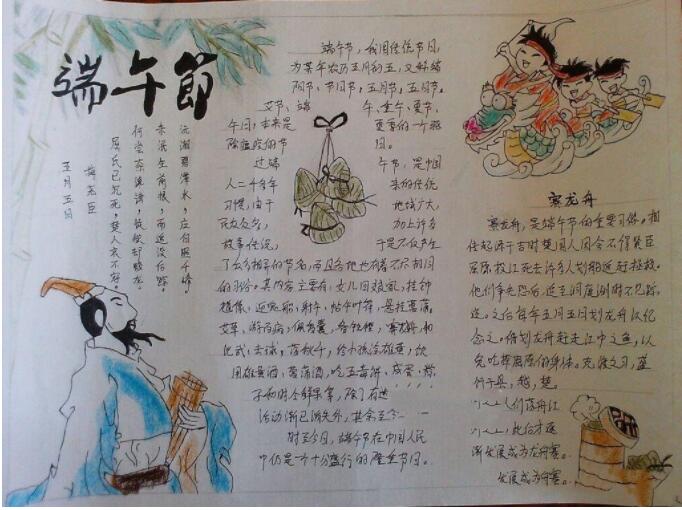 端午節
五月五日
梅尧臣
屈氏已沉死，楚人哀不容。
何尝奈谗谤，徒欲却蛟龙。
未泯生前恨，而追没后踪。
沅湘碧潭水，应自照千峰。
端午节，我国传统节日，
为某年农历五月初五，又称端
阳节、节日节，五月节，五月节。
艾节、端 午、重午、夏节、
午日，本来是 夏季的一个驱
除瘟疫的节 日。
过端 午节，是中国
人二千多年 来的传统
习惯，由于 地域广大，
民族众多， 加上许多
故事传说， 于是不仅产生
了众多相异的节名，而且各地也有着不尽相同
的习俗。其内容主要有：女儿回娘家，挂钟
馗像，迎鬼船、射午，帖午叶符，悬挂菖蒲、
艾草，游百病，佩香囊，备牲醴，赛龙舟，
比武，击球，荡秋千，给小孩涂雄黄，饮
用雄黄酒、菖蒲酒，吃五毒饼、咸蛋、粽
子和时令鲜果等，除了有迷
活动渐已消失外，其余至今
时至今日，端午节在中国人民
中仍是一个十分盛行的隆重节日。
赛龙舟
赛龙舟，是端午节的重要习俗。相
传起源于古时楚国人因舍不得贤臣
屈原投江死去许多人划船追赶拯救。
他们争先恐后，追至洞庭湖时不见踪
迹。之后每年五月五日划龙舟以纪
念之。借划龙舟赶走江中之鱼，以
免吃掉屈原的身体。竞渡之习，盛
行于吴，越，楚。
人们荡舟江
，此后才逐
渐发展成为龙舟赛。
发展成为舟赛。